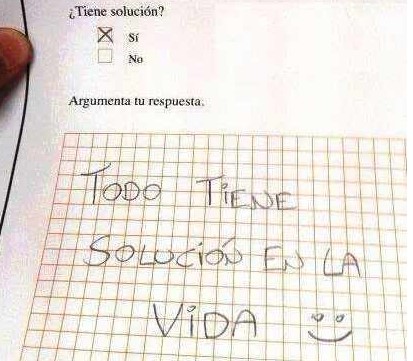 ¿Tiene solución?
Sí
No
Argumenta tu respuesta.
TODO TIENE
SOLUCIÓN EN LA
VIDA